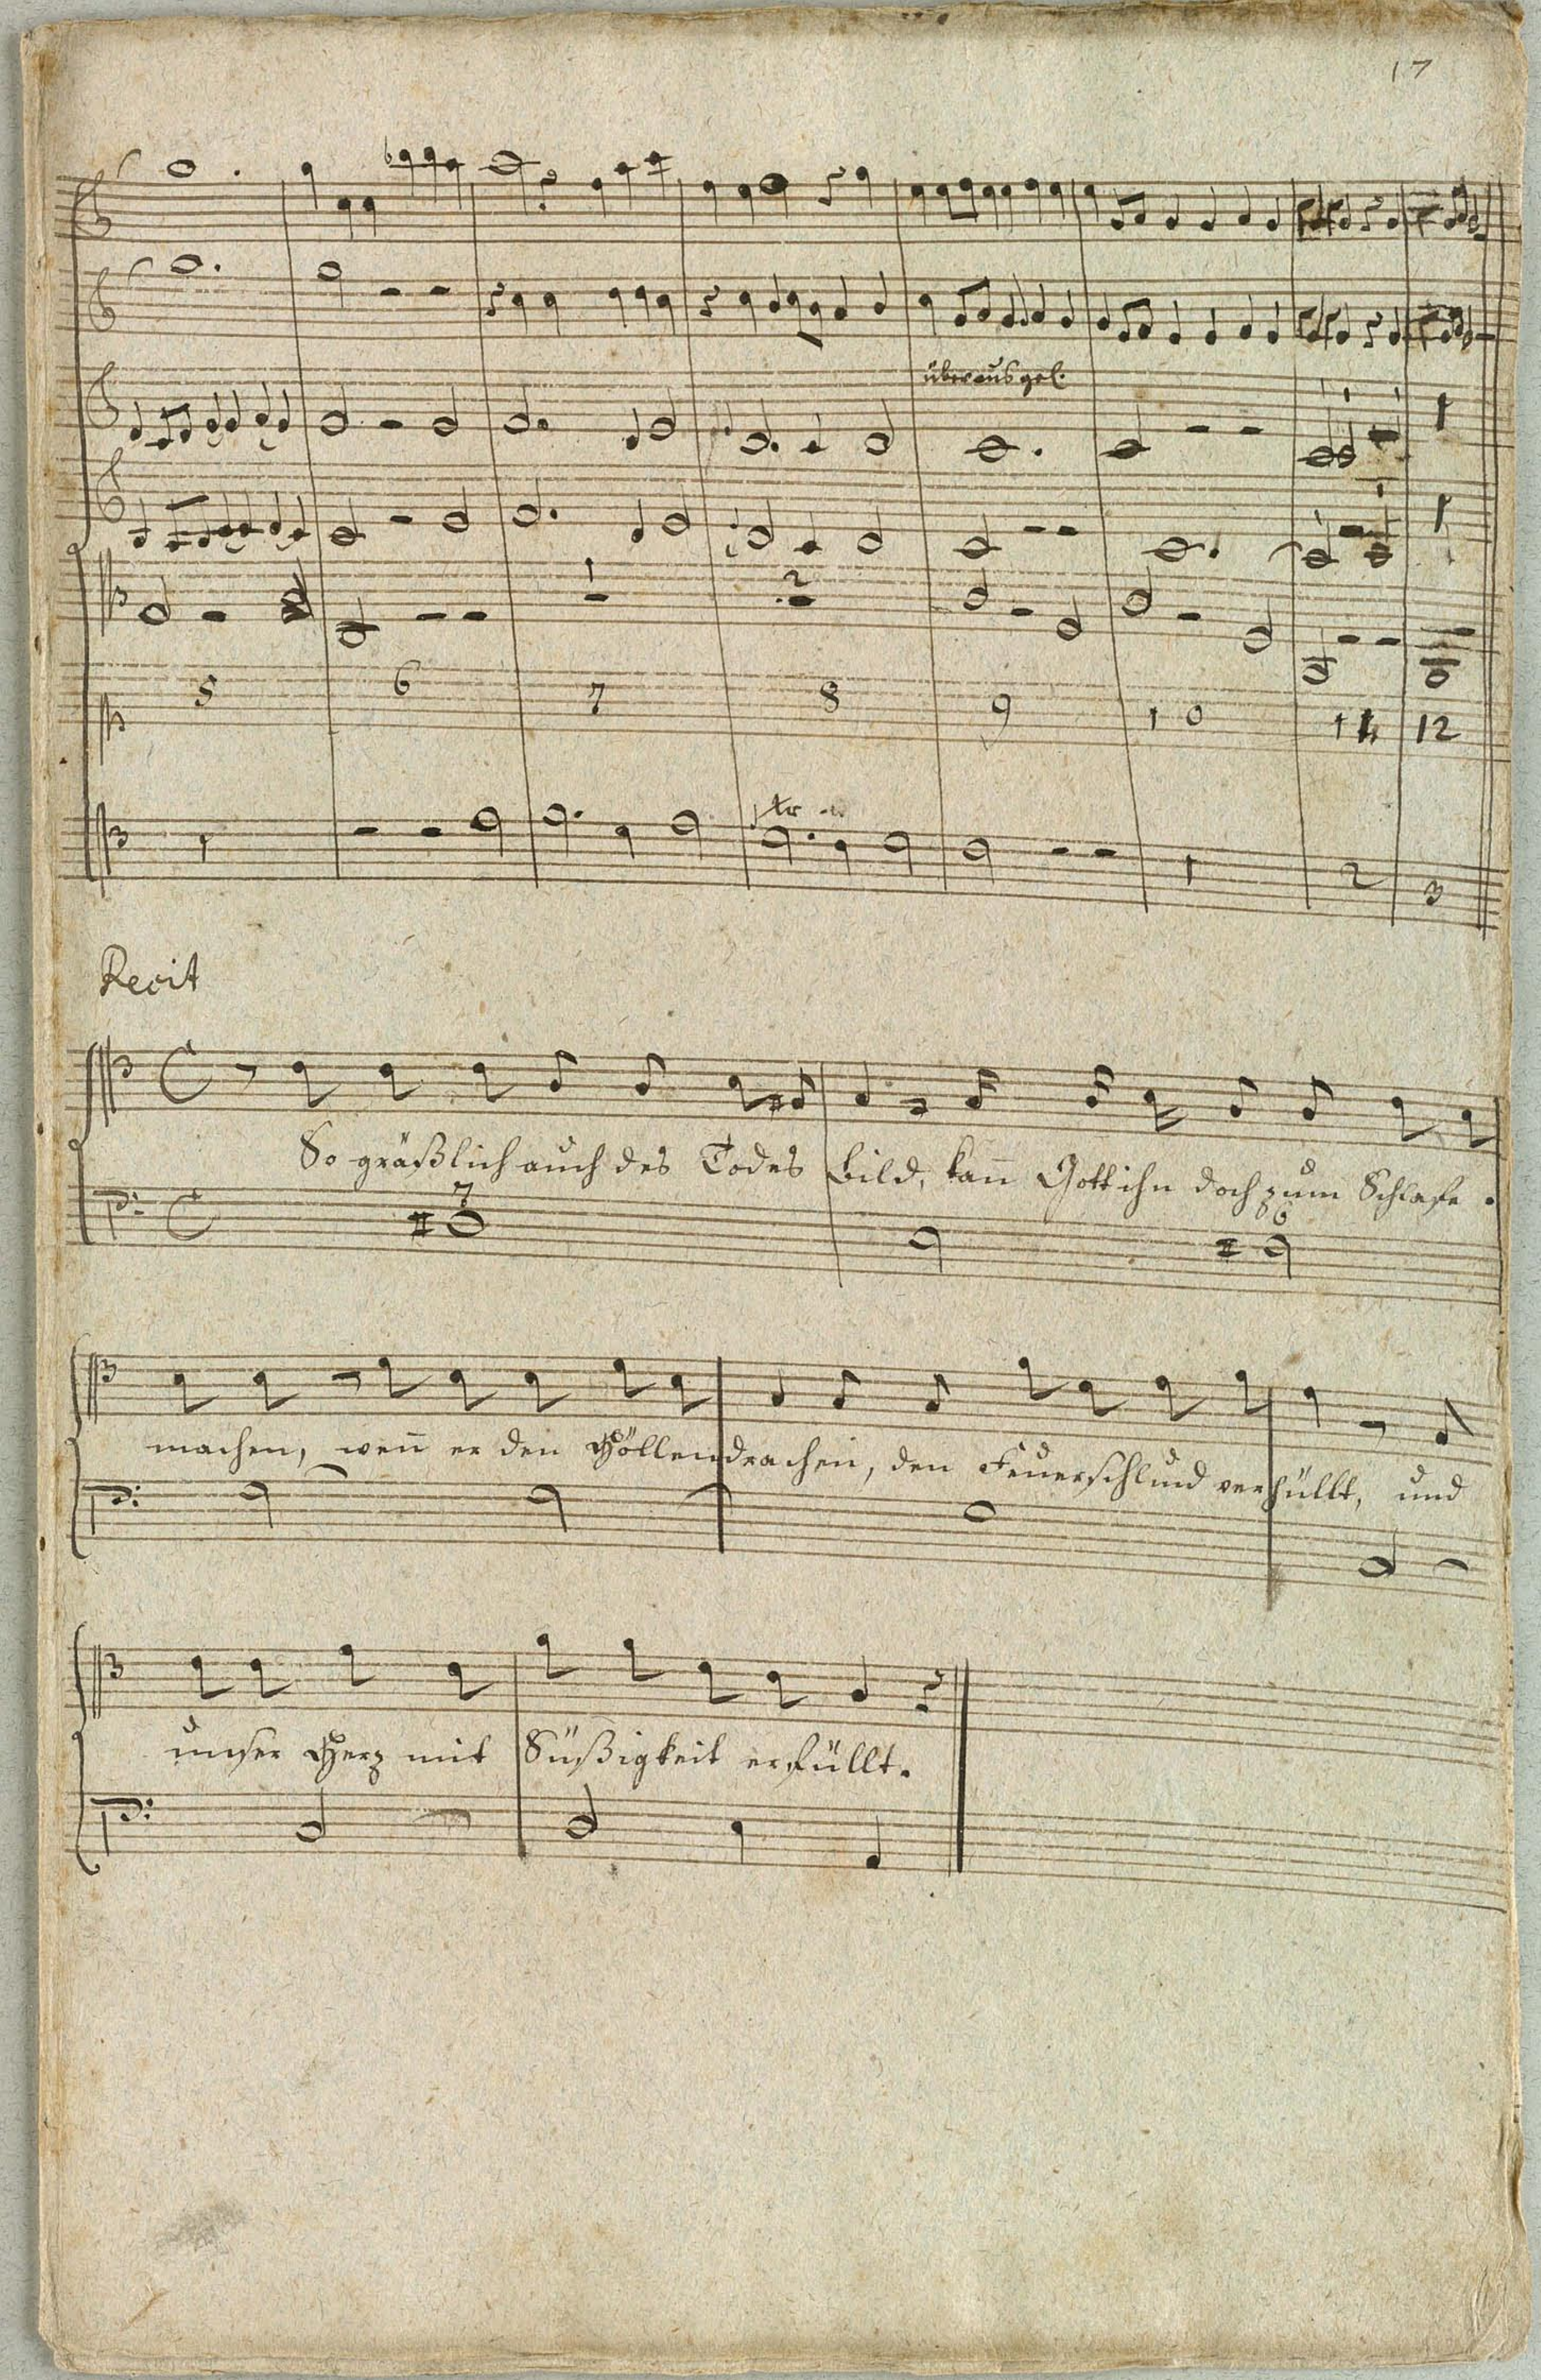 17
überaus gel.
5 6 7 8 9 10 11 12
1
2
tr
1 2 3
Recit
So gräßlich auch des Todes Bild, kan̄ Gott ihn doch zum Schlafe.
7
6
machen, wen̄ er den Höllendrachen, den Feuerschlund verhüllt, und
unser Herz mit Süßigkeit erfüllt.